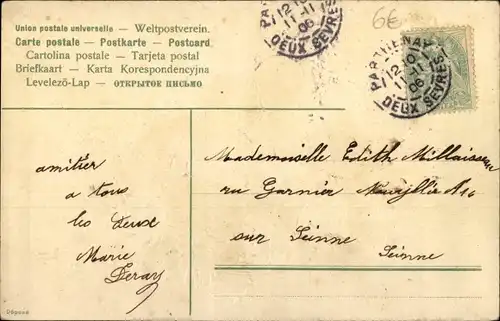 Union postale universelle — Weltpostverein.
Carte postale — Postkarte — Postcard
Cartolina postale — Tarjeta postal
Briefkaart — Karta Korespondencyjna
Levelező-Lap — ОТКРЫТОЕ ПИСЬМО
PARTHENAY
12-10
11-11
06
DEUX SÈVRES
PARTHENAY
12-10
11-11
06
DEUX SEVRES
6€
amitier
a tous
les deux
Marie
Mademoiselle Edith
ru Garnier
sur Seinne
Seinne